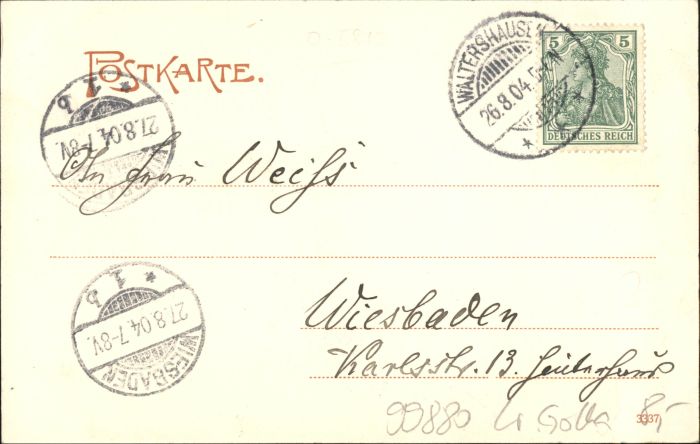 POSTKARTE.
WALTERSHAUSEN
26.8.04.
5 5
DEUTSCHES REICH
* 1 b
27.8.04.7-8V.
An Frau Weiß
* 1 b
27.8.04.7-8V.
WIESBADEN
Wiesbaden
Karlsstr. 13.
99880 Kr Gotha 8,-
3337